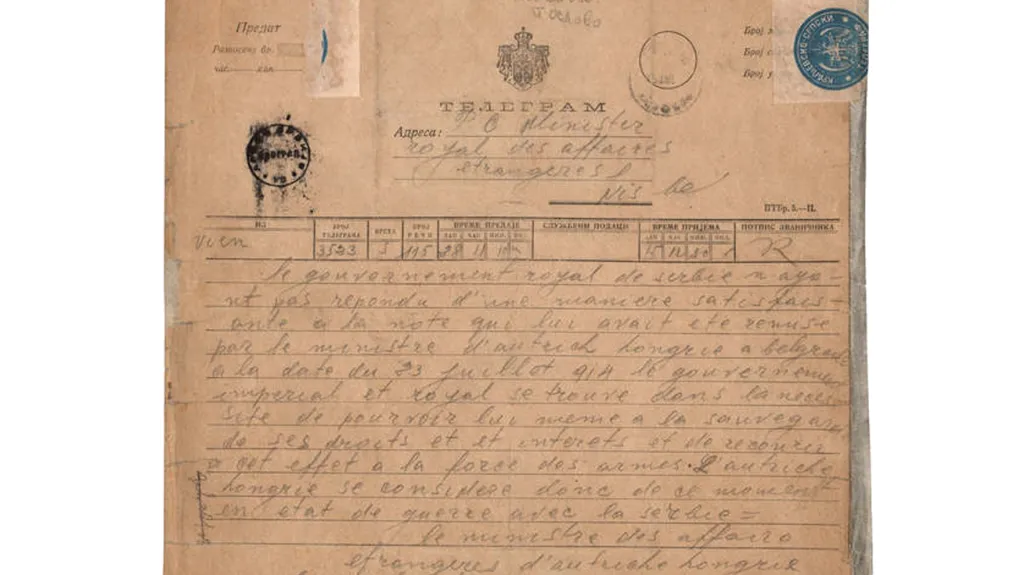 Предат
Број
ТЕЛЕГРАМ
Адреса: Minister
royal des affaires
etrangeres
Nis
ПТБр. 5.—II.
ИЗ БРОЈ ТЕЛЕГРАМА ВРСТА БРОЈ РЕЧИ ВРЕМЕ ПРЕДАЈЕ СЛУЖБЕНИ ПОДАЦИ ВРЕМЕ ПРИЈЕМА ПОТПИС ЗВАНИЧНИКА
ДАН ЧАС МИН. ДАН ЧАС МИН.
Vien 3523 S 115 28 11 R
le gouvernement royal de serbie n aya-
nt pas repondu d'une maniere satisfais-
ante a la note qui lui avait ete remise
par le ministre d'autrich hongrie a belgrade
a la date du 23 juillot 914 le gouvernement
imperial et royal se trouve dans la neces
site de pourvoir lui meme a la sauvegar
de ses droits et et interets et de recouri
a cet effet a la force des armes. L'autriche
hongrie se considere donc de ce moment
en etat de guerre avec la serbie =
le ministre des affairo
etrangeres d'autriche hongrie